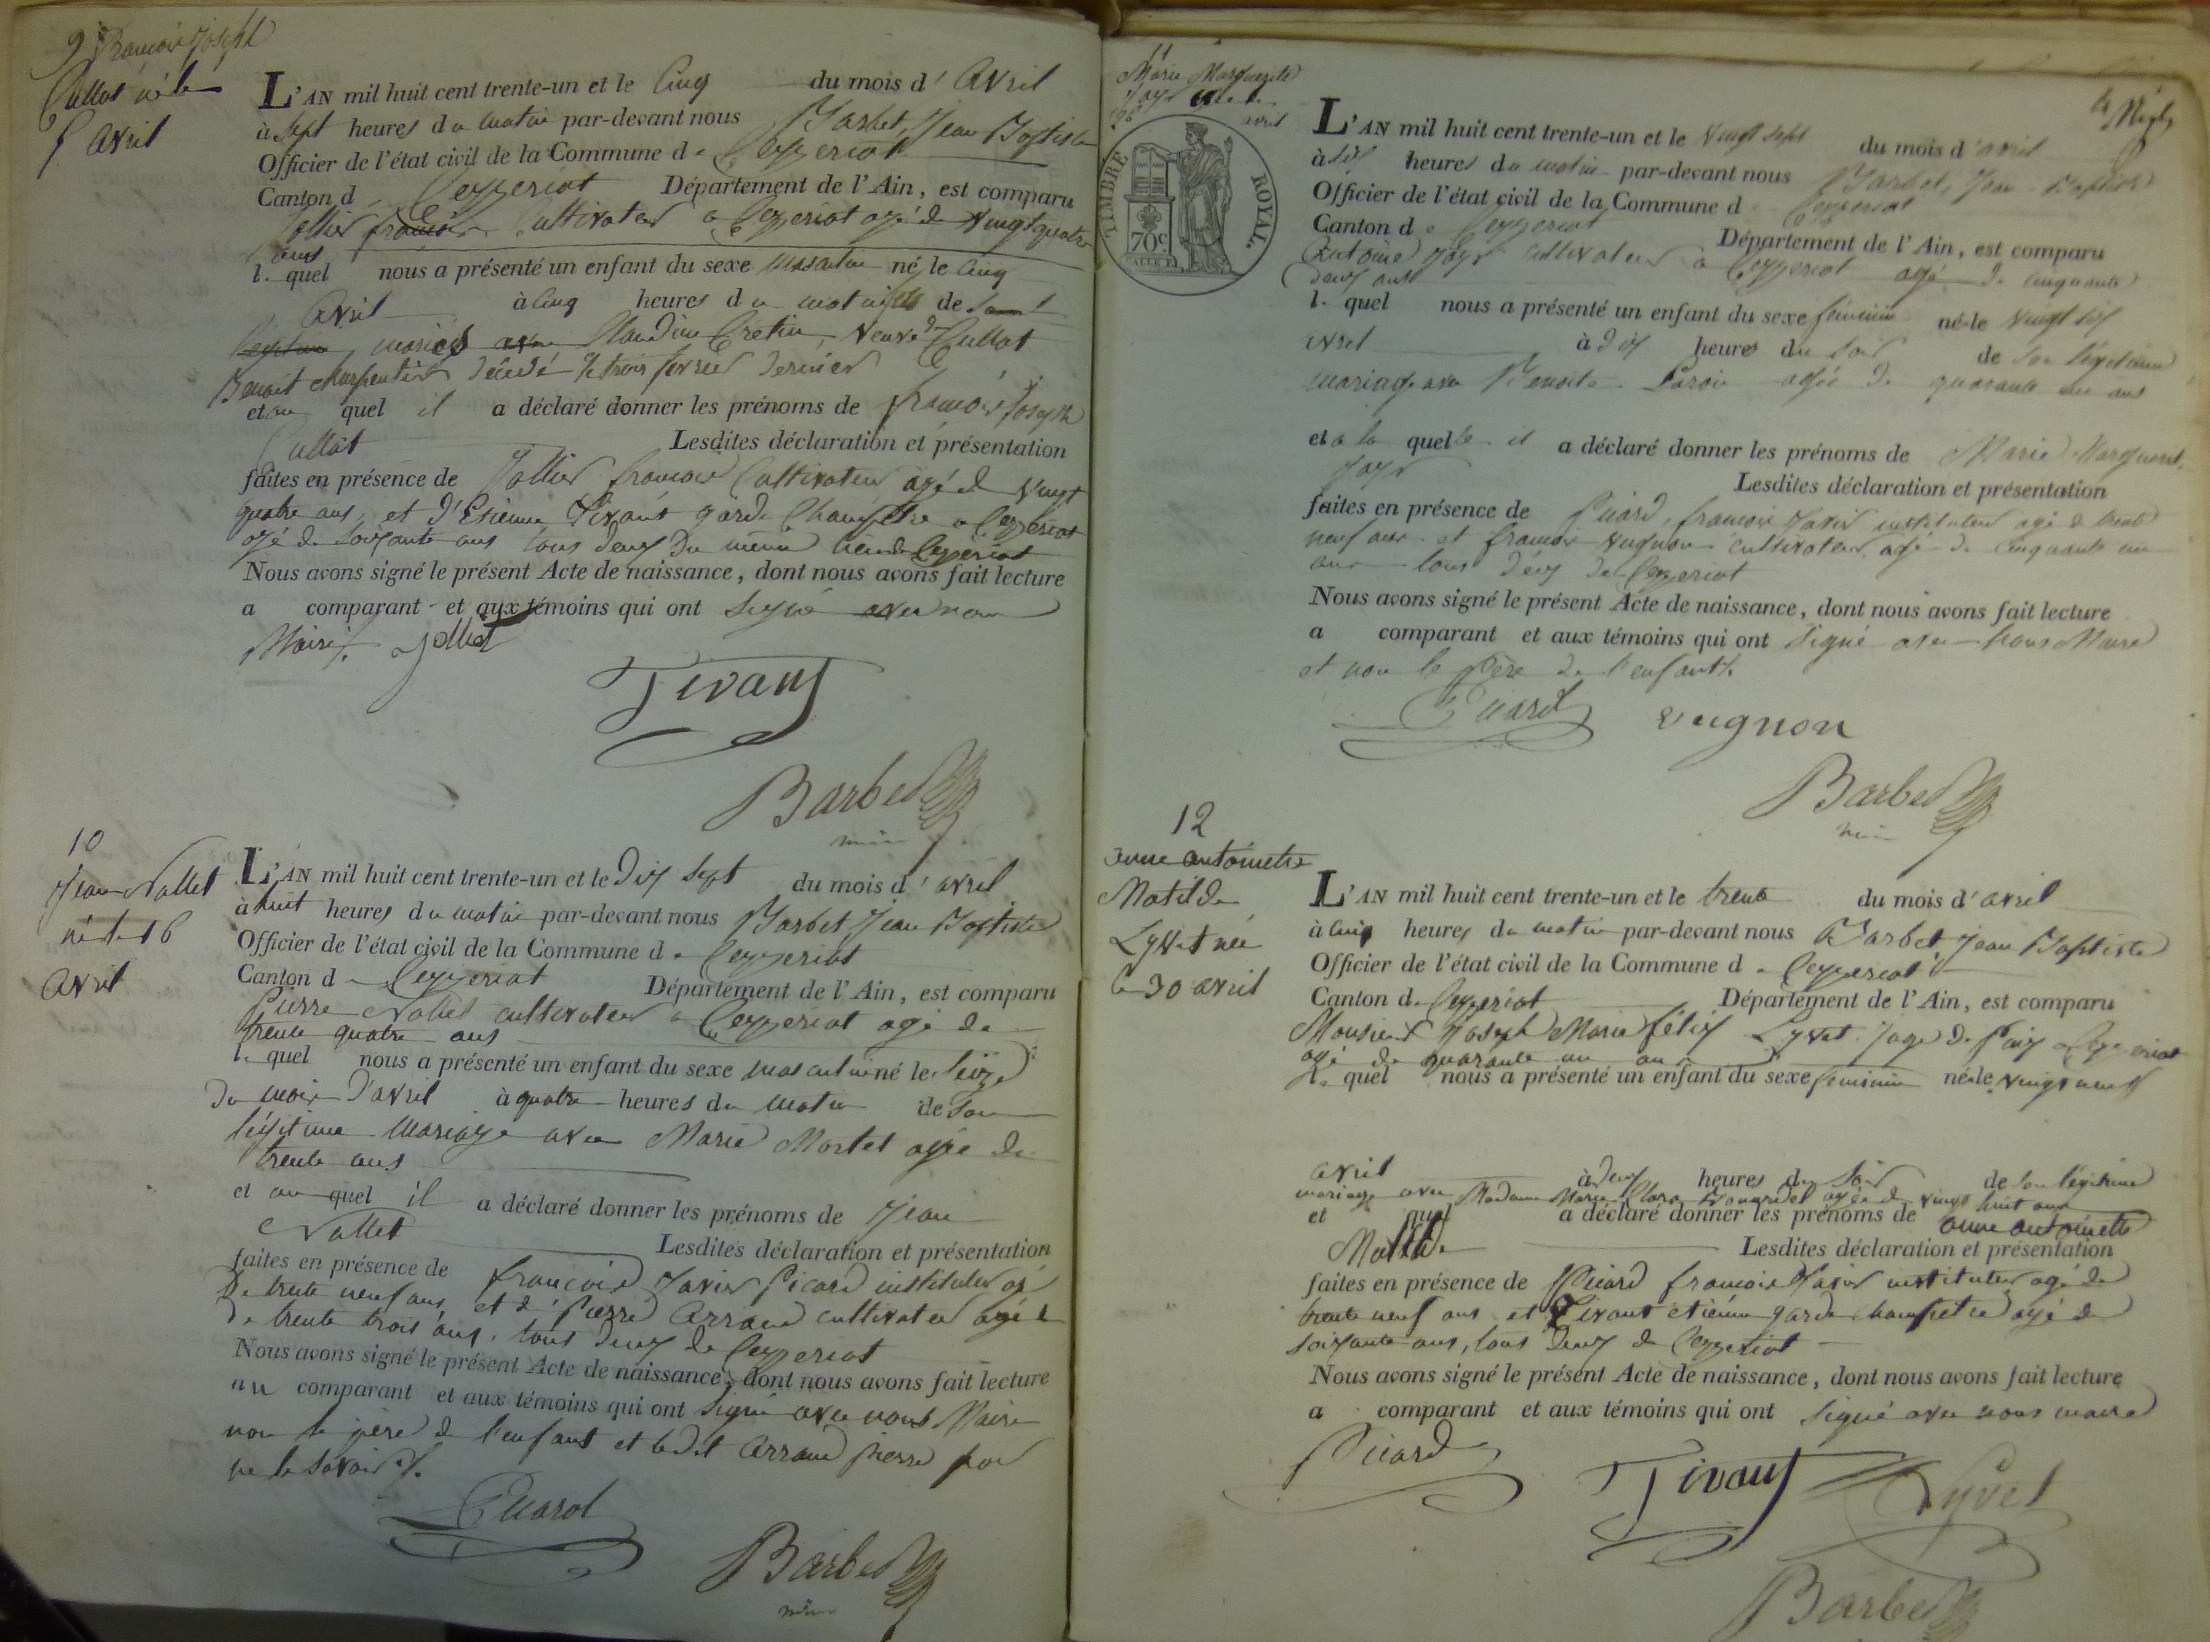 9 François Joseph
Cullat né le
5 avril
L'AN mil huit cent trente-un et le Cinq du mois d'Avril
à Sept heures du matin par-devant nous Barbet, Jean Baptiste
Officier de l'état civil de la Commune de Ceyzeriat
Canton de Ceyzeriat Département de l'Ain, est comparu
Jollier françois Cultivateur a Ceyzeriat agé de Vingt quatre
ans
le quel nous a présenté un enfant du sexe masculin né le Cinq
Avril à Cinq heures du matin de
mariage Claudine Cretin, veuve de Cullat
Benoit charpentier décédé le trois fevrier dernier
et au quel il a déclaré donner les prénoms de françois Joseph
Cullat Lesdites déclaration et présentation
faites en présence de Jollier françois Cultivateur agé de Vingt
quatre ans, et d'Etienne Tivant garde Champêtre a Ceyzeriat
agé de soixante ans tous deux du même lieu de Ceyzeriat
Nous avons signé le présent Acte de naissance, dont nous avons fait lecture
a comparant et aux témoins qui ont signé avec nous
Maire
Tivant
Barbet
maire
10
Jean Nallet
né le 16
avril
L'AN mil huit cent trente-un et le Dix Sept du mois d'avril
à huit heures du matin par-devant nous Barbet Jean Baptiste
Officier de l'état civil de la Commune de Ceyzeriat
Canton de Ceyzeriat Département de l'Ain, est comparu
Pierre Nallet cultivateur a Ceyzeriat agé de
trente quatre ans
le quel nous a présenté un enfant du sexe masculin né le seize
du mois d'avril à quatre heures du matin de son
légitime mariage avec Marie Mortel agée de
trente ans
et au quel il a déclaré donner les prénoms de Jean
Nallet Lesdites déclaration et présentation
faites en présence de françois Xavier Picard instituteur agé
de trente neuf ans, et de Pierre Arraud cultivateur agé
de trente trois ans, tous deux de Ceyzeriat
Nous avons signé le présent Acte de naissance, dont nous avons fait lecture
au comparant et aux témoins qui ont signé avec nous Maire
non le père de l'enfant et ledit Arraud pierre pour
ne le savoir
Picard
Barbet
maire
11
Marie Marguerite
Jayr née le
26 avril
TIMBRE ROYAL.
70 c
L'AN mil huit cent trente-un et le Vingt sept du mois d'avril
à six heures du matin par-devant nous Barbet, Jean Baptiste
Officier de l'état civil de la Commune de Ceyzeriat
Canton de Ceyzeriat Département de l'Ain, est comparu
Antoine Jayr cultivateur a Ceyzeriat agé de cinquante
deux ans
le quel nous a présenté un enfant du sexe féminin née le Vingt six
avril à dix heures du soir de son légitime
mariage avec Benoite agée de quarante ans
et a la quelle il a déclaré donner les prénoms de Marie Marguerite
Jayr Lesdites déclaration et présentation
faites en présence de Picard, françois Xavier instituteur agé de trente
neuf ans et françois Vugnon cultivateur agé de cinquante un
ans tous deux de Ceyzeriat
Nous avons signé le présent Acte de naissance, dont nous avons fait lecture
a comparant et aux témoins qui ont signé avec nous Maire
et non le Père de l'enfant.
Picard vugnon
Barbet
maire
12
anne antoinette
Matilde
Lyvet née
le 30 avril
L'AN mil huit cent trente-un et le trente du mois d'avril
à cinq heures du matin par-devant nous Barbet Jean Baptiste
Officier de l'état civil de la Commune de Ceyzeriat
Canton de Ceyzeriat Département de l'Ain, est comparu
Monsieur Joseph Marie félix Lyvet Juge de Paix a Ceyzeriat
agé de quarante un ans
le quel nous a présenté un enfant du sexe féminin née le vingt neuf
avril à deux heures du soir de son légitime
mariage avec Madame Marie Clara agée de vingt huit ans
et quel a déclaré donner les prénoms de anne antoinette
Matilde Lesdites déclaration et présentation
faites en présence de Picard françois Xavier instituteur agé de
trente neuf ans et Tivant étiénne garde champetre agé de
soixante ans, tous deux de Ceyzeriat
Nous avons signé le présent Acte de naissance, dont nous avons fait lecture
a comparant et aux témoins qui ont signé avec nous maire
Picard Tivant Lyvet
Barbet